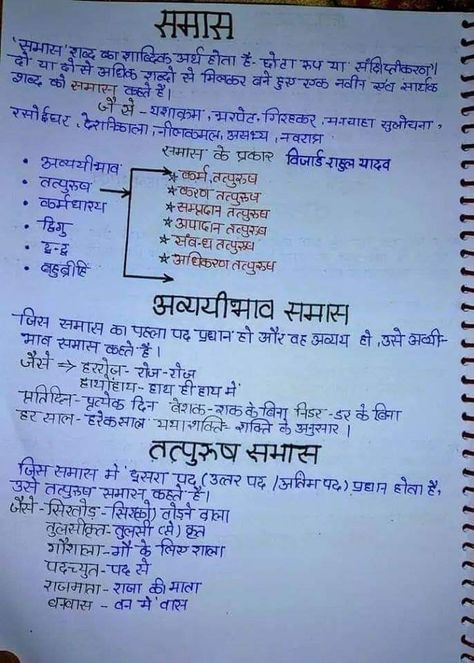 समास
'समास' शब्द का शाब्दिक अर्थ होता है- छोटा रूप या संक्षिप्तीकरण।
दो या दो से अधिक शब्दो से मिलकर बने हुए एक नवीन एवं सार्थक
शब्द को समास कहते है।
जैसे - यथाक्रम, भरपेट, गिरहकर, मनचाहा सुलोचना,
रसोईघर, देशनिकाला, नीलकमल, असभ्य, नवरात्र
समास के प्रकार विजार्ड राहुल यादव
• अव्ययीभाव
• तत्पुरुष
• कर्मधारय
• द्विगु
• द्वन्द्व
• बहुब्रीहि
* कर्म तत्पुरुष
* करण तत्पुरुष
* सम्प्रदान तत्पुरुष
* अपादान तत्पुरुष
* संबन्ध तत्पुरुष
* अधिकरण तत्पुरुष
अव्ययीभाव समास
जिस समास का पहला पद प्रधान हो और वह अव्यय हो, उसे अव्ययी-
भाव समास कहते है।
जैसे ⇒ हररोज - रोज - रोज
हाथोहाथ - हाथ ही हाथ में
प्रतिदिन - प्रत्येक दिन बेशक - शक के बिना निडर - डर के बिना
हर साल - हरेक साल यथाशक्ति - शक्ति के अनुसार।
तत्पुरुष समास
जिस समास में 'दूसरा' पद (उत्तर पद / अंतिम पद) प्रधान होता है,
उसे तत्पुरुष समास कहते है।
जैसे - सिरतोड़ - सिर(को) तोड़ने वाला
तुलसीकृत - तुलसी (से) कृत
गौशाला - गौ के लिए शाला
पदच्युत - पद से
राजमाता - राजा की माता
वनवास - वन में वास